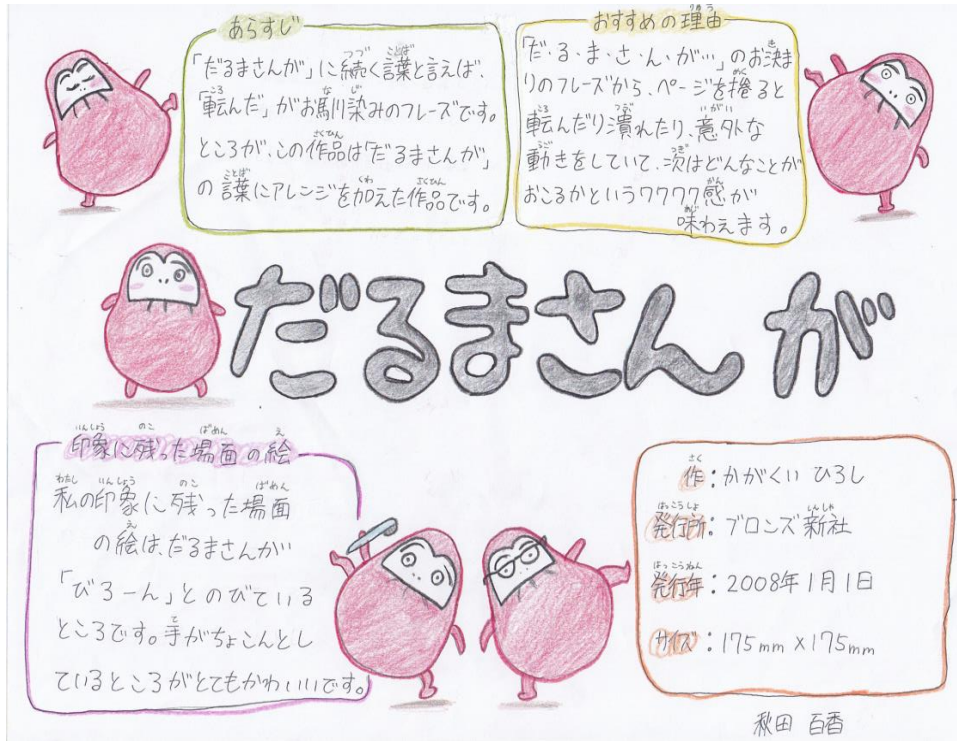 あらすじ
「だるまさんが」に続く言葉と言えば、
「転んだ」がお馴染みのフレーズです。
ところが、この作品は「だるまさんが」
の言葉にアレンジを加えた作品です。
おすすめの理由
「だ・る・ま・さ・ん・が…」のお決ま
りのフレーズから、ページを捲ると
転んだり潰れたり、意外な
動きをしていて、次はどんなことが
おこるかというワクワク感が
味わえます。
だるまさんが
印象に残った場面の絵
私の印象に残った場面
の絵は、だるまさんが
「びろーん」とのびている
ところです。手がちょこんとし
ているところがとてもかわいいです。
作:かがくい ひろし
発行所:ブロンズ新社
発行年:2008年1月1日
サイズ:175mm×175mm
秋田 百香